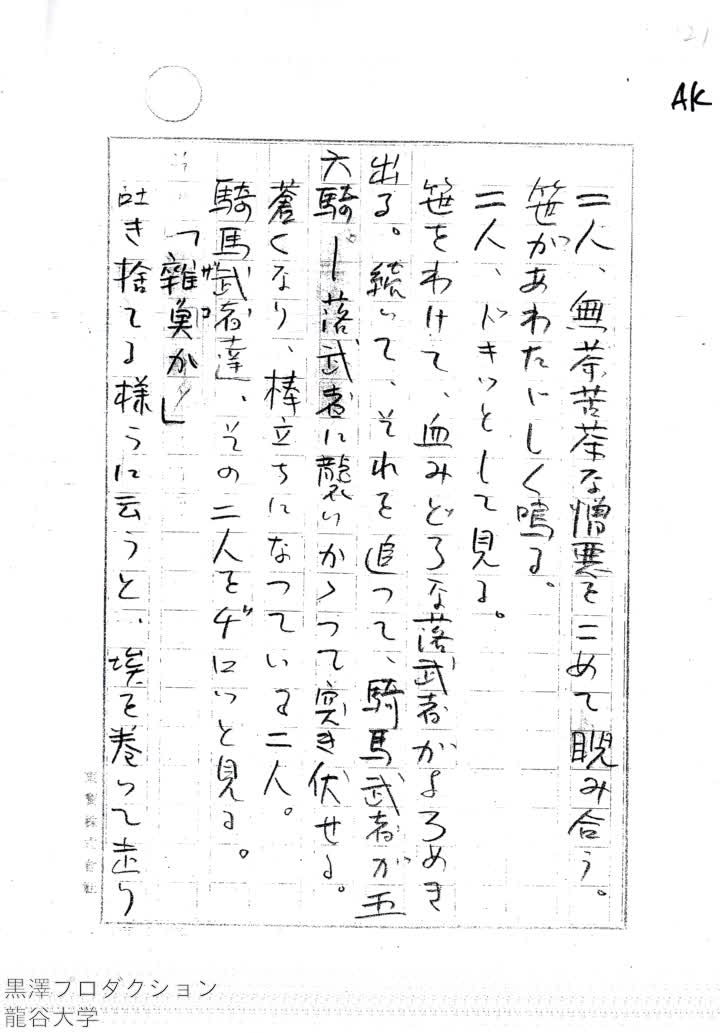 21
AK
二人、無茶苦茶な憎悪をこめて睨み合う。
笹があわたゞしく鳴る。
二人、ドキッとして見る。
笹をわけて、血みどろな落武者がよろめき
出る。続いて、それを追って、騎馬武者が五
六騎――落武者に襲いかゝって突き伏せる。
蒼くなり、棒立ちになっている二人。
騎馬武者達、その二人をヂロッと見る。
「雜魚か」
ザコ
吐き捨てる様うに云うと、埃を巻って走り
東寳株式会社
黒澤プロダクション
龍谷大学